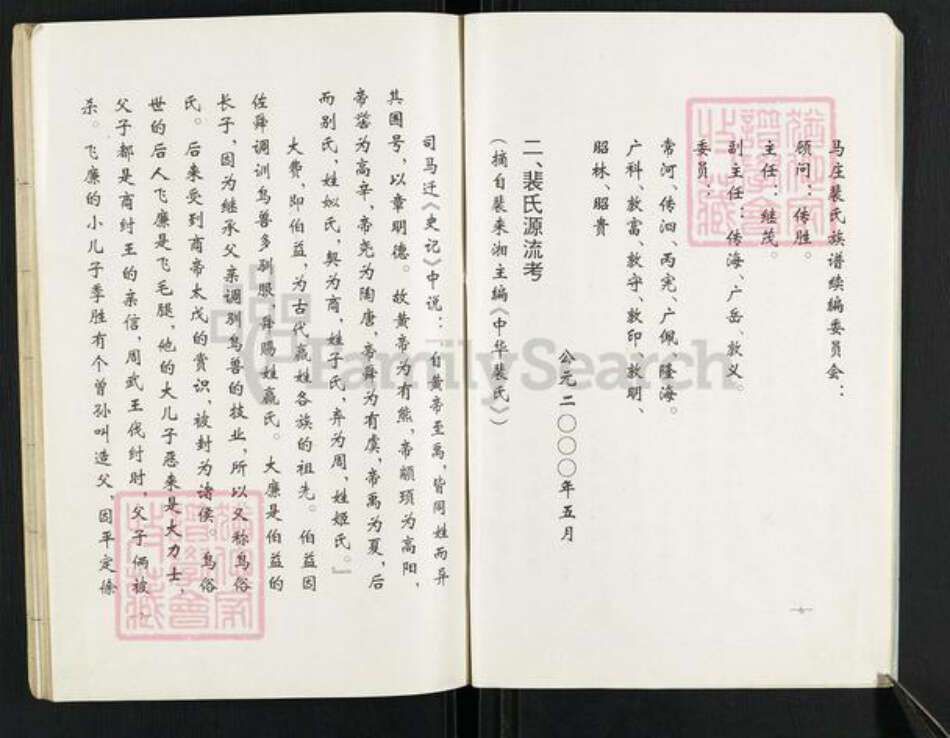 马庄裴氏族谱续编委员会：
顾问：传胜。
主任：继茂。
副主任：传海、广岳、敦义。
委员：
常河、传泗、丙宪、广佩、隆海。
广科、敦富、敦守、敦印、敦明、
昭林、昭贵
公元二〇〇〇年五月
二、裴氏源流考
（摘自裴来湘主编《中华裴氏》）
司马迁《史记》中说：“自黄帝至禹，皆同姓而异
其国号，以章明德。故黄帝为有熊，帝颛顼为高阳，
帝喾为高辛，帝尧为陶唐，帝舜为有虞，帝禹为夏，后
而别氏，姓姒氏，契为商，姓子氏，弃为周，姓姬氏。”
大费，即伯益，为古代嬴姓各族的祖先。伯益因
佐舜调训鸟兽多驯服，舜赐姓嬴氏。大廉是伯益的
长子，因为继承父亲调驯鸟兽的技业，所以又称鸟俗
氏。后来受到商帝太戊的赏识，被封为诸侯。鸟俗
世的后人飞廉是飞毛腿，他的大儿子恶来是大力士，
父子都是商纣王的亲信，周武王伐纣时，父子俩被
杀。飞廉的小儿子季胜有个曾孙叫造父，因平定徐
FamilySearch